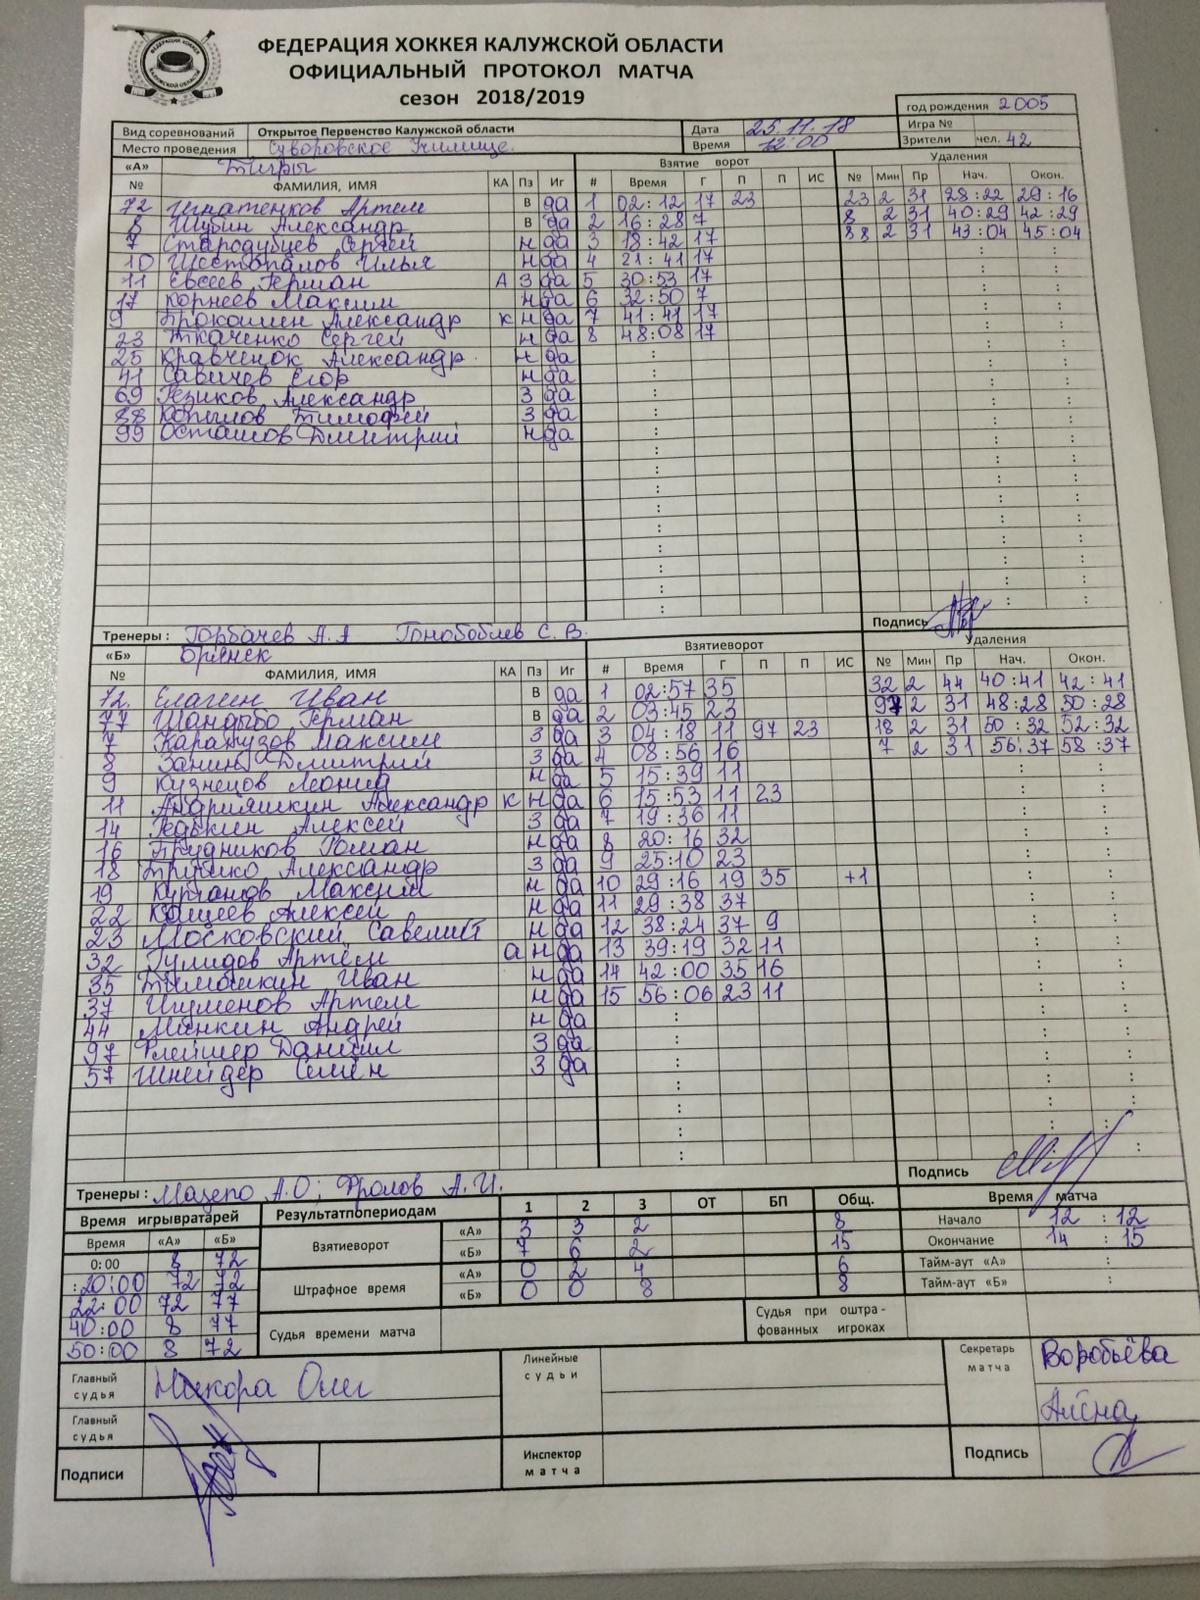 ФЕДЕРАЦИЯ ХОККЕЯ КАЛУЖСКОЙ ОБЛАСТИ
ОФИЦИАЛЬНЫЙ ПРОТОКОЛ МАТЧА
сезон 2018/2019
год рождения 2005
Вид соревнований Открытое Первенство Калужской области Дата 25.11.18 Игра №
Место проведения Суворовское Училище. Время 12:00 Зрители чел. 42
«А» Тигры Взятие ворот Удаления
№ ФАМИЛИЯ, ИМЯ КА Пз Иг # Время Г П П ИС № Мин Пр Нач. Окон.
72 Игнатенков Артем в да 1 02:12 17 23 23 2 31 28:22 29:16
8 Шубин Александр в да 2 16:28 7 8 2 31 40:29 42:29
7 Стародубцев Сергей н да 3 18:42 17 88 2 31 43:04 45:04
10 Шестопалов Илья н да 4 21:41 17
11 Евсеев Герман А З да 5 30:53 17
17 Корнеев Максим н да 6 32:50 7
9 Прокошен Александр К н да 7 41:41 17
23 Ткаченко Сергей н да 8 48:08 17
25 Кравченок Александр н да
41 Савичев Егор н да
69 Резиков Александр З да
88 Копылов Тимофей З да
99 Осташов Дмитрий н да
Тренеры: Горбачев А.А Гонобоблев С.В. Подпись
«Б» Брянск Взятиеворот Удаления
№ ФАМИЛИЯ, ИМЯ КА Пз Иг # Время Г П П ИС № Мин Пр Нач. Окон.
72. Елагин Иван в да 1 02:57 35 32 2 44 40:41 42:41
77 Шандыбо Герман в да 2 03:45 23 97 2 31 48:28 50:28
7 Карапузов Максим З да 3 04:18 11 97 23 18 2 31 50:32 52:32
8 Занин Дмитрий З да 4 08:56 16 7 2 31 56:37 58:37
9 Кузнецов Леонид н да 5 15:39 11
11 Андрияшкин Александр К н да 6 15:53 11 23
14 Редькин Алексей З да 7 19:36 11
16 Прудников Роман н да 8 20:16 32
18 Трушко Александр З да 9 25:10 23
19 Курганов Максим н да 10 29:16 19 35 +1
22 Кащеев Алексей н да 11 29:38 37
23 Московский Савелий н да 12 38:24 37 9
32 Гулидов Артём а н да 13 39:19 32 11
35 Тимошкин Иван н да 14 42:00 35 16
37 Игуменов Артем н да 15 56:06 23 11
44 Минкин Андрей н да
97 Флейшер Даниил З да
57 Шнейдер Семён З да
Подпись
Тренеры: Мазепо А.О; Фролов А.И.
Время игрывратарей Результатпопериодам 1 2 3 ОТ БП Общ. Время матча
Время «А» «Б» Взятиеворот «А» 3 3 2 8 Начало 12:12
0:00 8 72 «Б» 7 6 2 15 Окончание 14:15
:20:00 72 72 Штрафное время «А» 0 2 4 6 Тайм-аут «А» :
22:00 72 77 «Б» 0 0 8 8 Тайм-аут «Б» :
40:00 8 77 Судья времени матча Судья при оштра-
50:00 8 72 фованных игроках
Главный судья Никора Олег Линейные судьи Секретарь матча Воробьёва
Главный судья Алёна
Подписи Инспектор матча Подпись